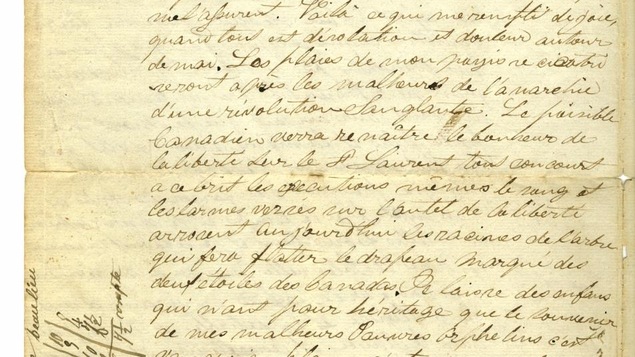 me l'assurent. Voilà ce qui me remplit de joie,
quand tout est désolation et douleur autour
de moi. Les plaies de mon pays se cicatri
seront après les malheurs de l'anarchie
d'une révolution sanglante. Le paisible
Canadien verra renaître le bonheur de
la liberté sur le St Laurent tout concourt
a ce but les éxécutions mêmes le sang et
les larmes versés sur l'autel de la liberté
arrosent aujourd'hui les racines de l'arbre
qui fera flotter le drapeau marqué des
deux étoiles des Canadas. Je laisse des enfans
qui n'ont pour héritage que le souvenir
de mes malheurs Pauvres orphelins c'est
beaulieu
compte